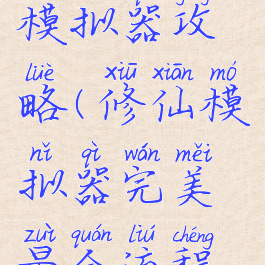 模拟器攻
lüè xiū xiān mó
略(修仙模
nǐ qì wán měi
拟器完美
zuì quán liú chéng
最全流程